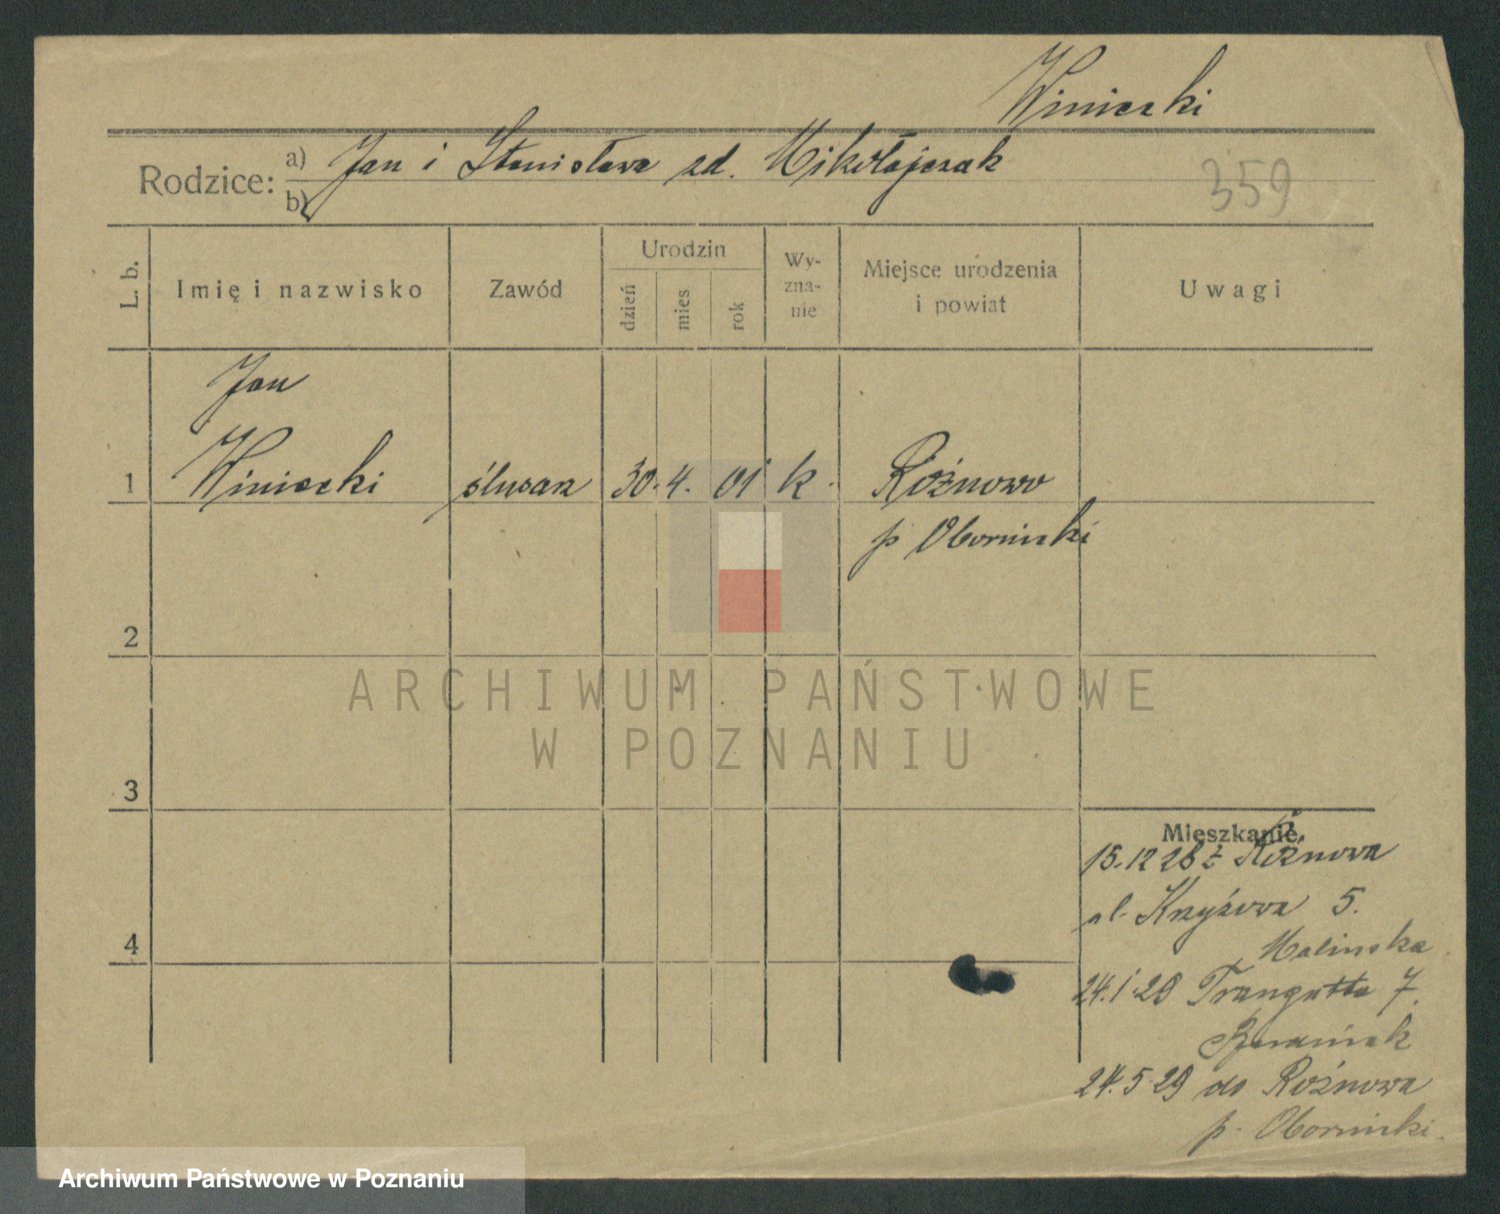 Winiecki
Rodzice: a) Jan i Stanisława zd. Mikołajczak
b)
359
L. b.
Imię i nazwisko
Zawód
Urodzin
dzień
mies
rok
Wy-
zna-
nie
Miejsce urodzenia
i powiat
Uwagi
Jan
1 Winiecki ślusarz 30. 4. 01 k. Różnowo
p Obornicki
2
3
4
Mieszkanie:
15.12 28 z Różnowa
ul. Krzyżowa 5.
Malinska
24.1 29 Traugutta 7.
24.5 29 do Różnowa
p. Obornicki.
ARCHIWUM PAŃSTWOWE
W POZNANIU
Archiwum Państwowe w Poznaniu